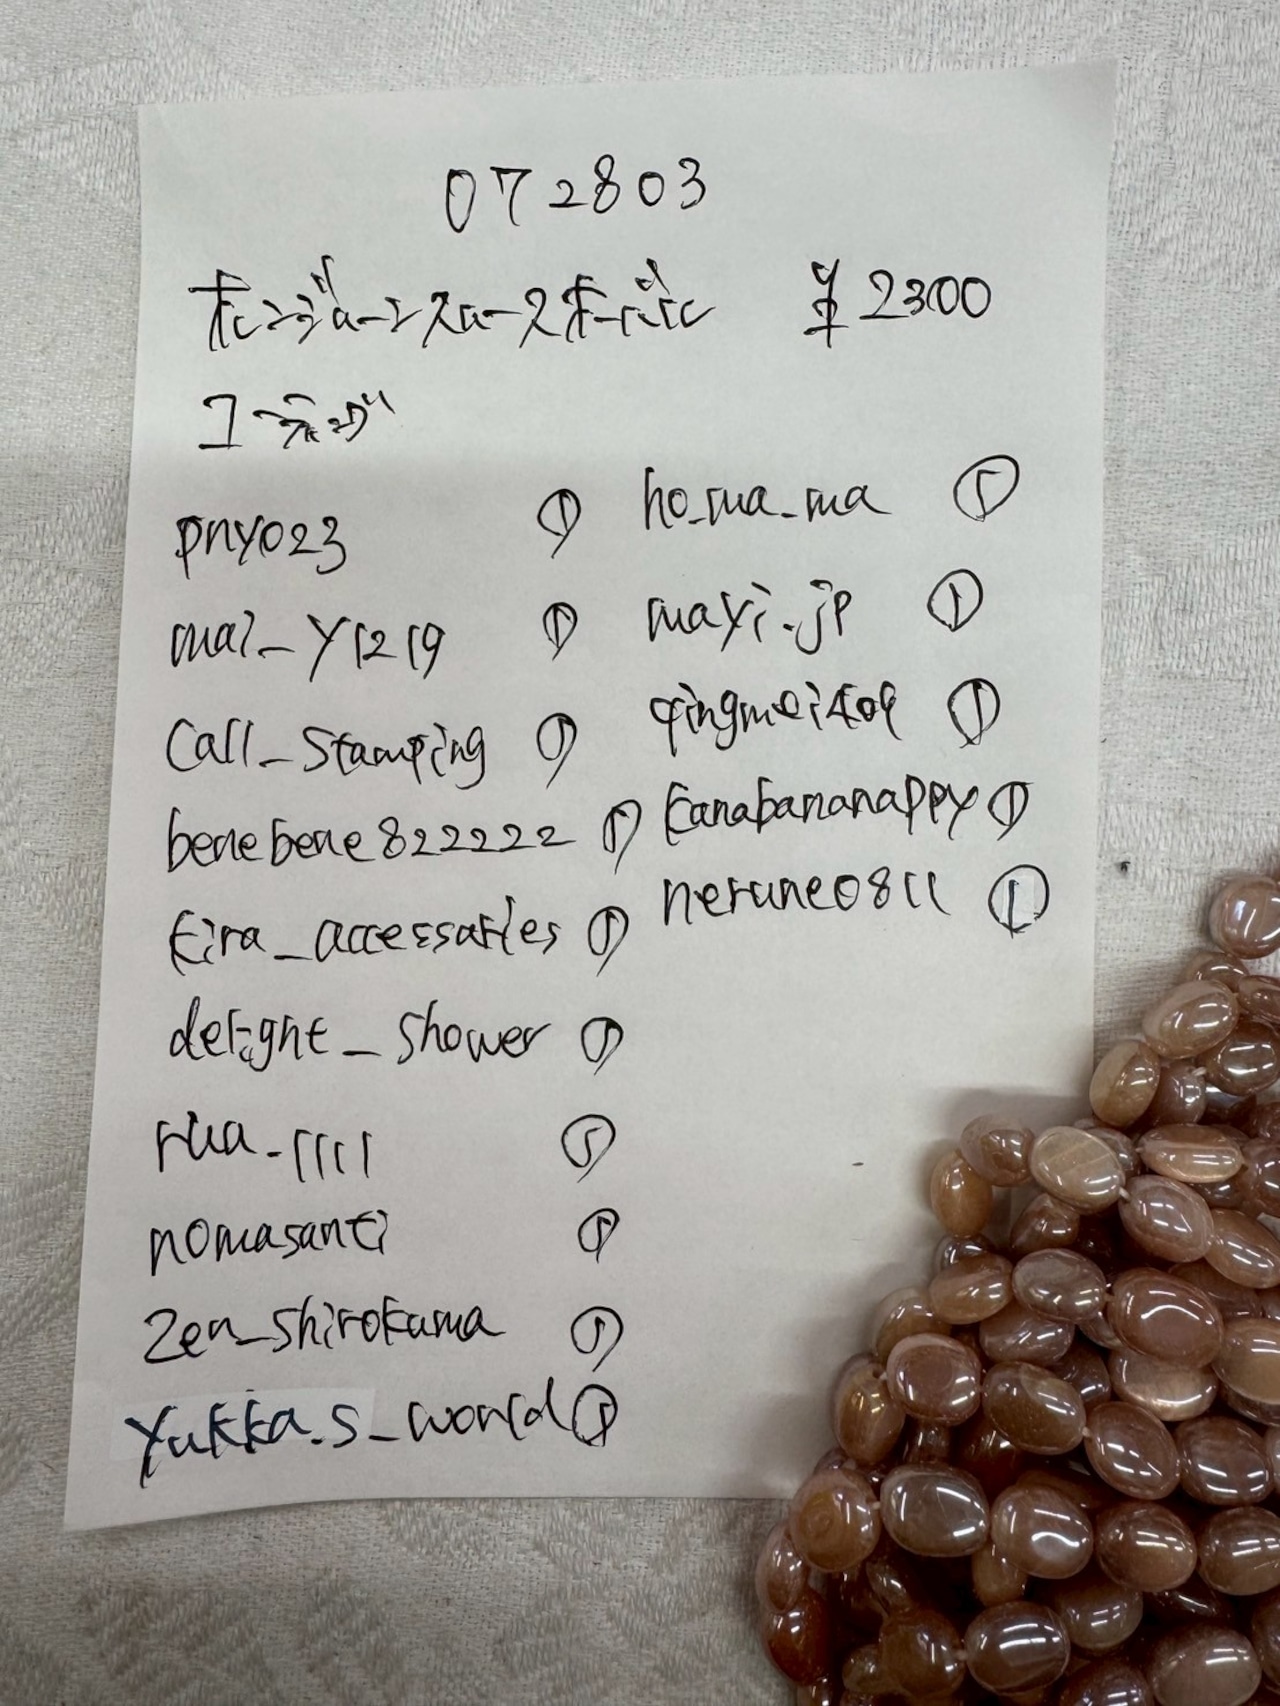 072803
オレンジムーンストーンオーバル ¥2300
コーティング
pny023 ①
mai_y1219 ①
Call_Stamping ①
benebene822222 ①
kira_accessaries ①
delight_shower ①
rua_1111 ①
nomasanti ①
zen_shirokuma ①
yukka.s_world ①
ho_ma_ma ①
mayi.jp ①
qingmei409 ①
kanabananappy ①
nerune0811 ①